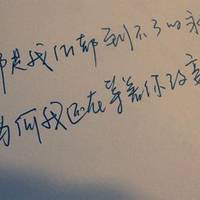 那是我们都到不了的永
为何我还在等着你改变